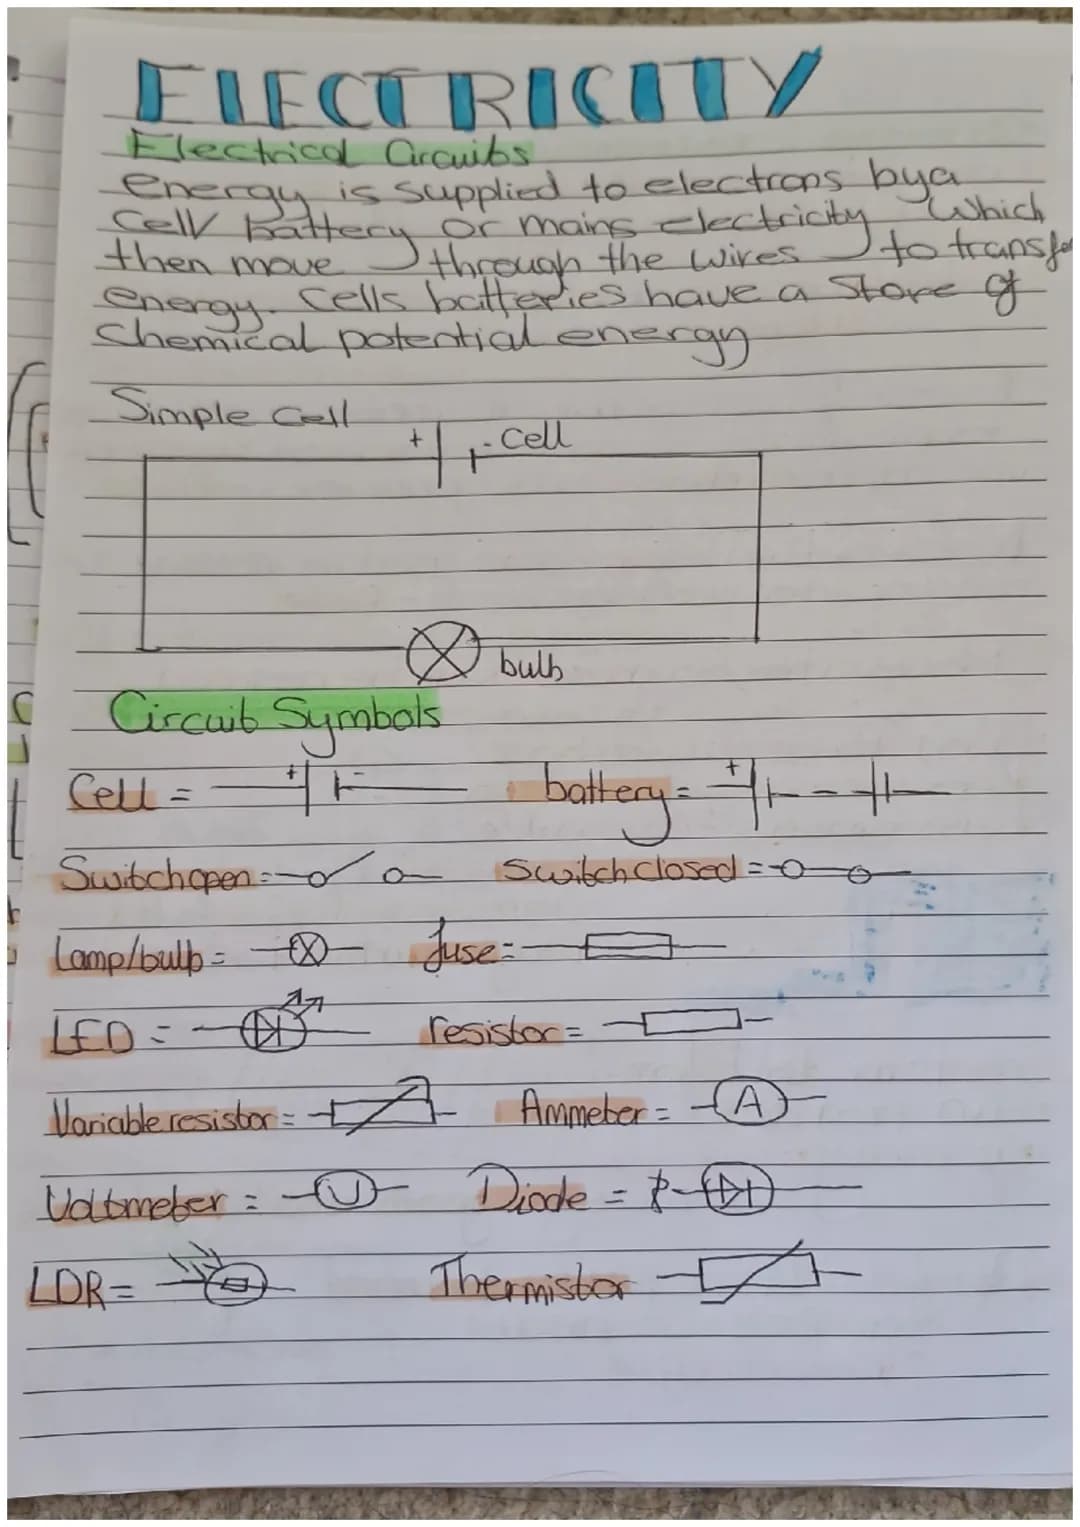 ELECTRICITY
Electrical Circuits
energy is supplied to electrons by a
Cell battery or mains electricity which
then move through the wires to transfer
energy. Cells batteries have a store of
Chemical potential energy
Simple Cell
+ - Cell
bulb
Circuit Symbols
Cell = + - battery = +
Switch open = Switch closed =
Lamp/bulb = fuse =
LED = resistor =
Variable resistor = Ammeter = A
Voltmeter = V Diode =
LDR = Thermistor